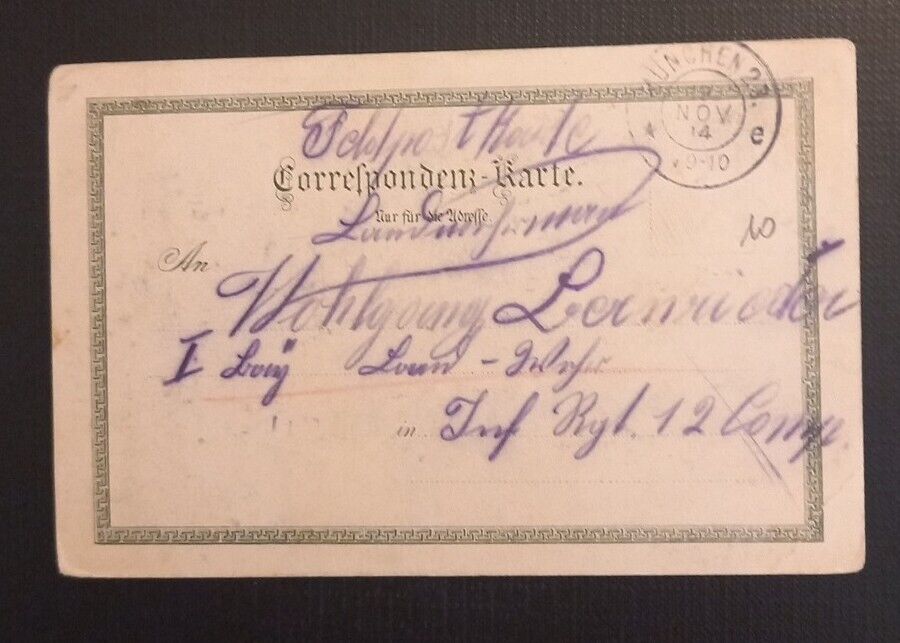 MÜNCHEN 2.
7
NOV
14
9-10
e
Feldpostkarte
Correspondenz-Karte.
Landwehrmann
Nur für die Adresse.
10
An
Wohlgang
I bay Land-Wehr
in Inf Rgt. 12 Comp.